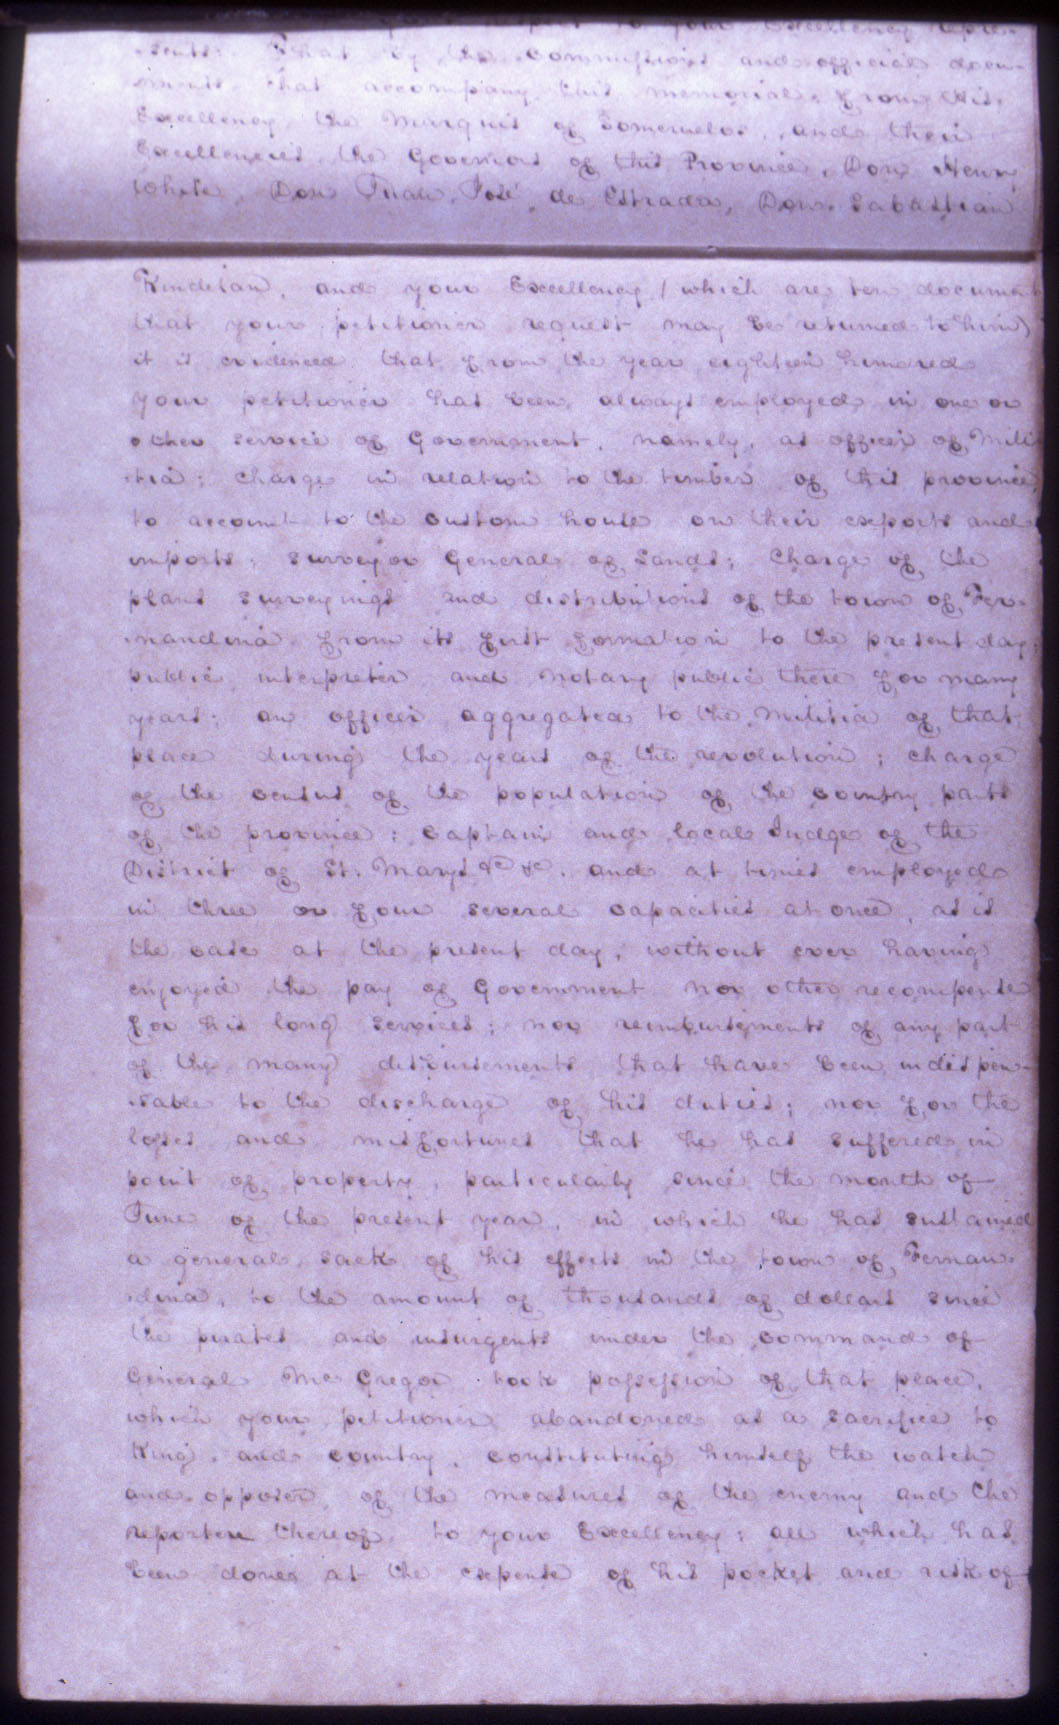 respect to your Excellency repre-
sents: That by the Commissions and official docu-
ments that accompany this memorial, from His
Excellency the Marquis of Someruelos, and their
Excellencies the Governors of this Province, Don Henry
White, Don Juan José de Estrada, Don Sabastian
Kindelan, and your Excellency (which are ten document
that your petitioner request may be returned to him)
it is evidenced that from the year eighteen hundred
your petitioner has been always employed in one or
other service of Government, namely, as officer of Mili
-tia; charge in relation to the timber of this province
to account to the custom house on their exports and
imports; Surveyor General of Lands; Charge of the
plans surveyings and distributions of the town of Fer-
-nandina from its first formation to the present day;
public interpreter and notary public there for many
years; an officer aggregated to the Militia of that
place during the years of the revolution; charge
of the census of the population of the country parts
of the province; Captain and local Judge of the
District of St. Marys &c &c. and at times employed
in three or four several capacities at once, as is
the case at the present day, without ever having
enjoyed the pay of Government nor other recompense
for his long services; nor reimbursements of any part
of the many disbursements that have been indispen-
-sable to the discharge of his duties; nor for the
losses and misfortunes that he has suffered in
point of property, particularly since the month of
June of the present year, in which he has sustained
a general sack of his effects in the town of Fernan-
-dina, to the amount of thousands of dollars since
the pirates and insurgents under the command of
General Mc Gregor took possession of that place,
which your petitioner abandoned as a sacrifice to
King and country, constituting himself the watch
and opposer of the measures of the enemy and the
reporter thereof to your Excellency; all which has
been done at the expense of his pocket and risk of